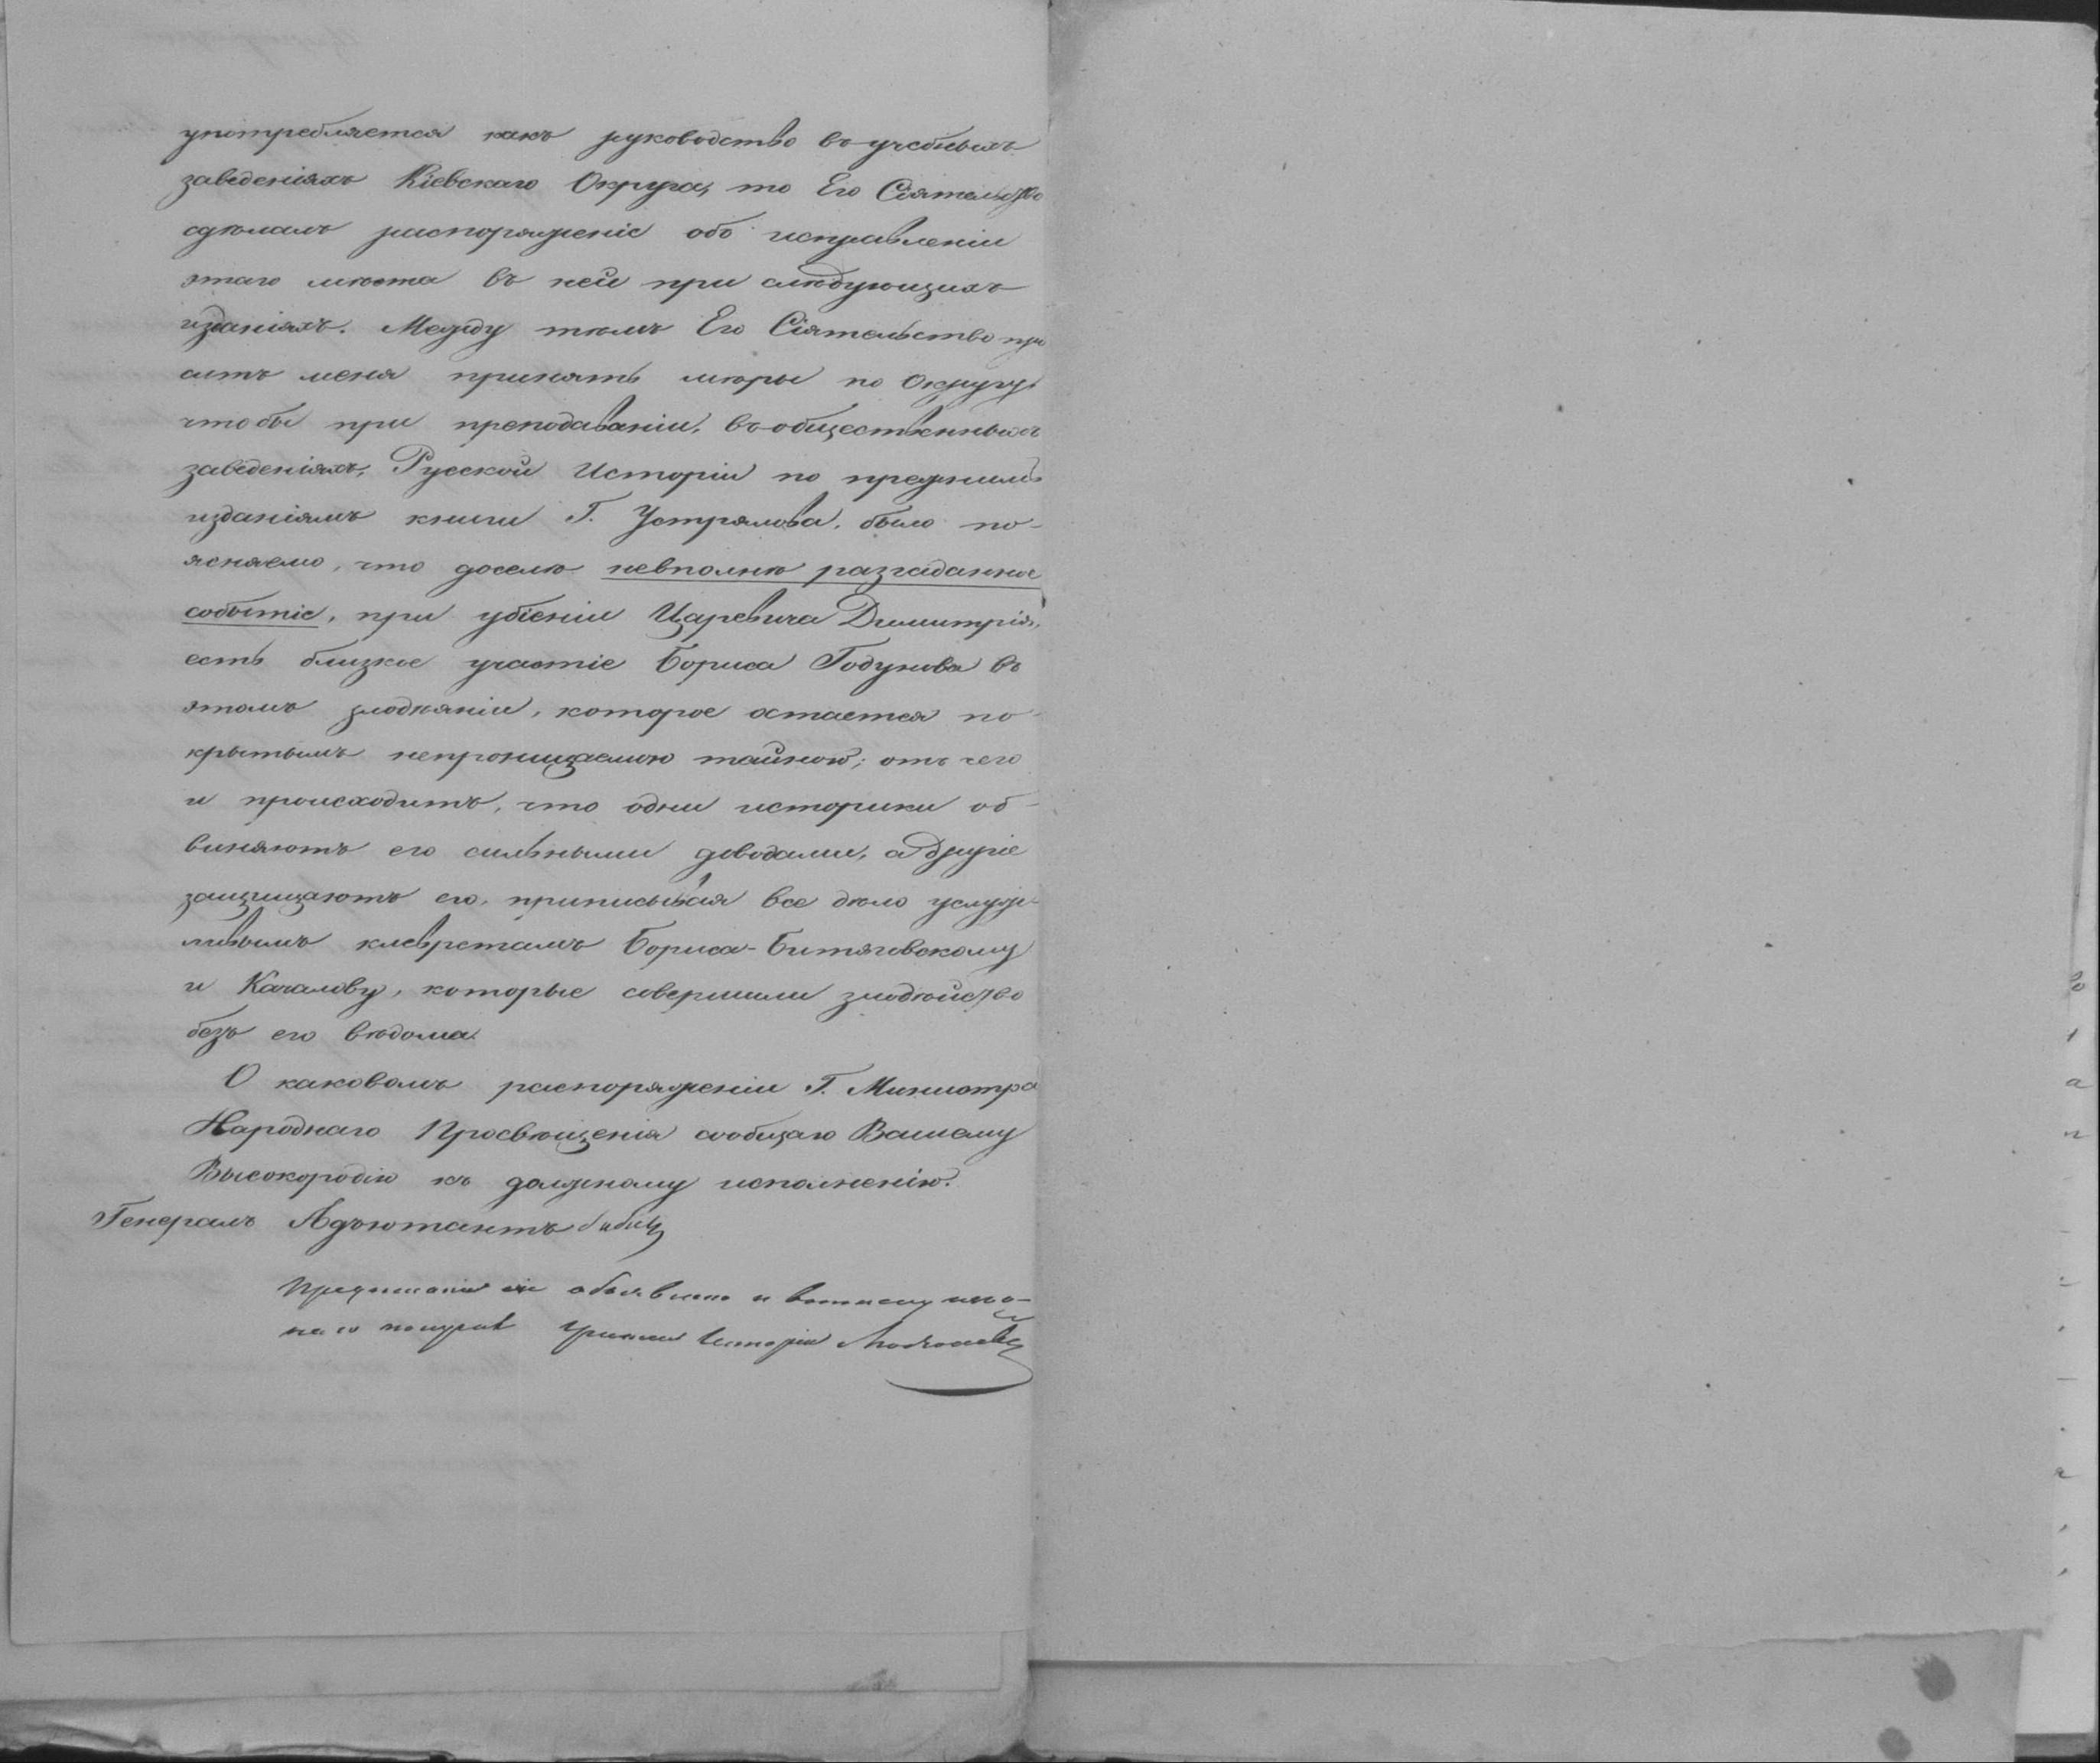 употребляется какъ руководство въ учебныхъ
заведеніяхъ Кіевскаго Округа, то Его Сіятельство
сдѣлалъ распоряженіе объ исправленіи
этаго мѣста въ ней при слѣдующихъ
изданіяхъ. Между тѣмъ Его Сіятельство про
ситъ меня принять мѣры по Округу
чтобы при преподаваніи, въ общественныхъ
заведеніяхъ, Русской Исторіи по прежнимъ
изданіямъ книги Г. Устрялова, было по-
ясняемо, что доселѣ невполнѣ разгаданное
событіе, при убіеніи Царевича Димитрія,
есть близкое участіе Бориса Годунова въ
этомъ злодѣяніи, которое остается по-
крытымъ непроницаемою тайною; отъ чего
и происходитъ, что одни историки об-
виняютъ его сильными доводами, а другіе
защищаютъ его, приписывая все дѣло услуж-
ливымъ клевретамъ Бориса - Битяговскому
и Качалову, которые совершили злодѣйство
безъ его вѣдома.
О каковомъ распоряженіи Г. Министра
Народнаго Просвѣщенія сообщаю Вашему
Высокородію къ должному исполненію.
Генералъ Адъютантъ Бибик
Предписаніе сіе объявлено и
Исторіи